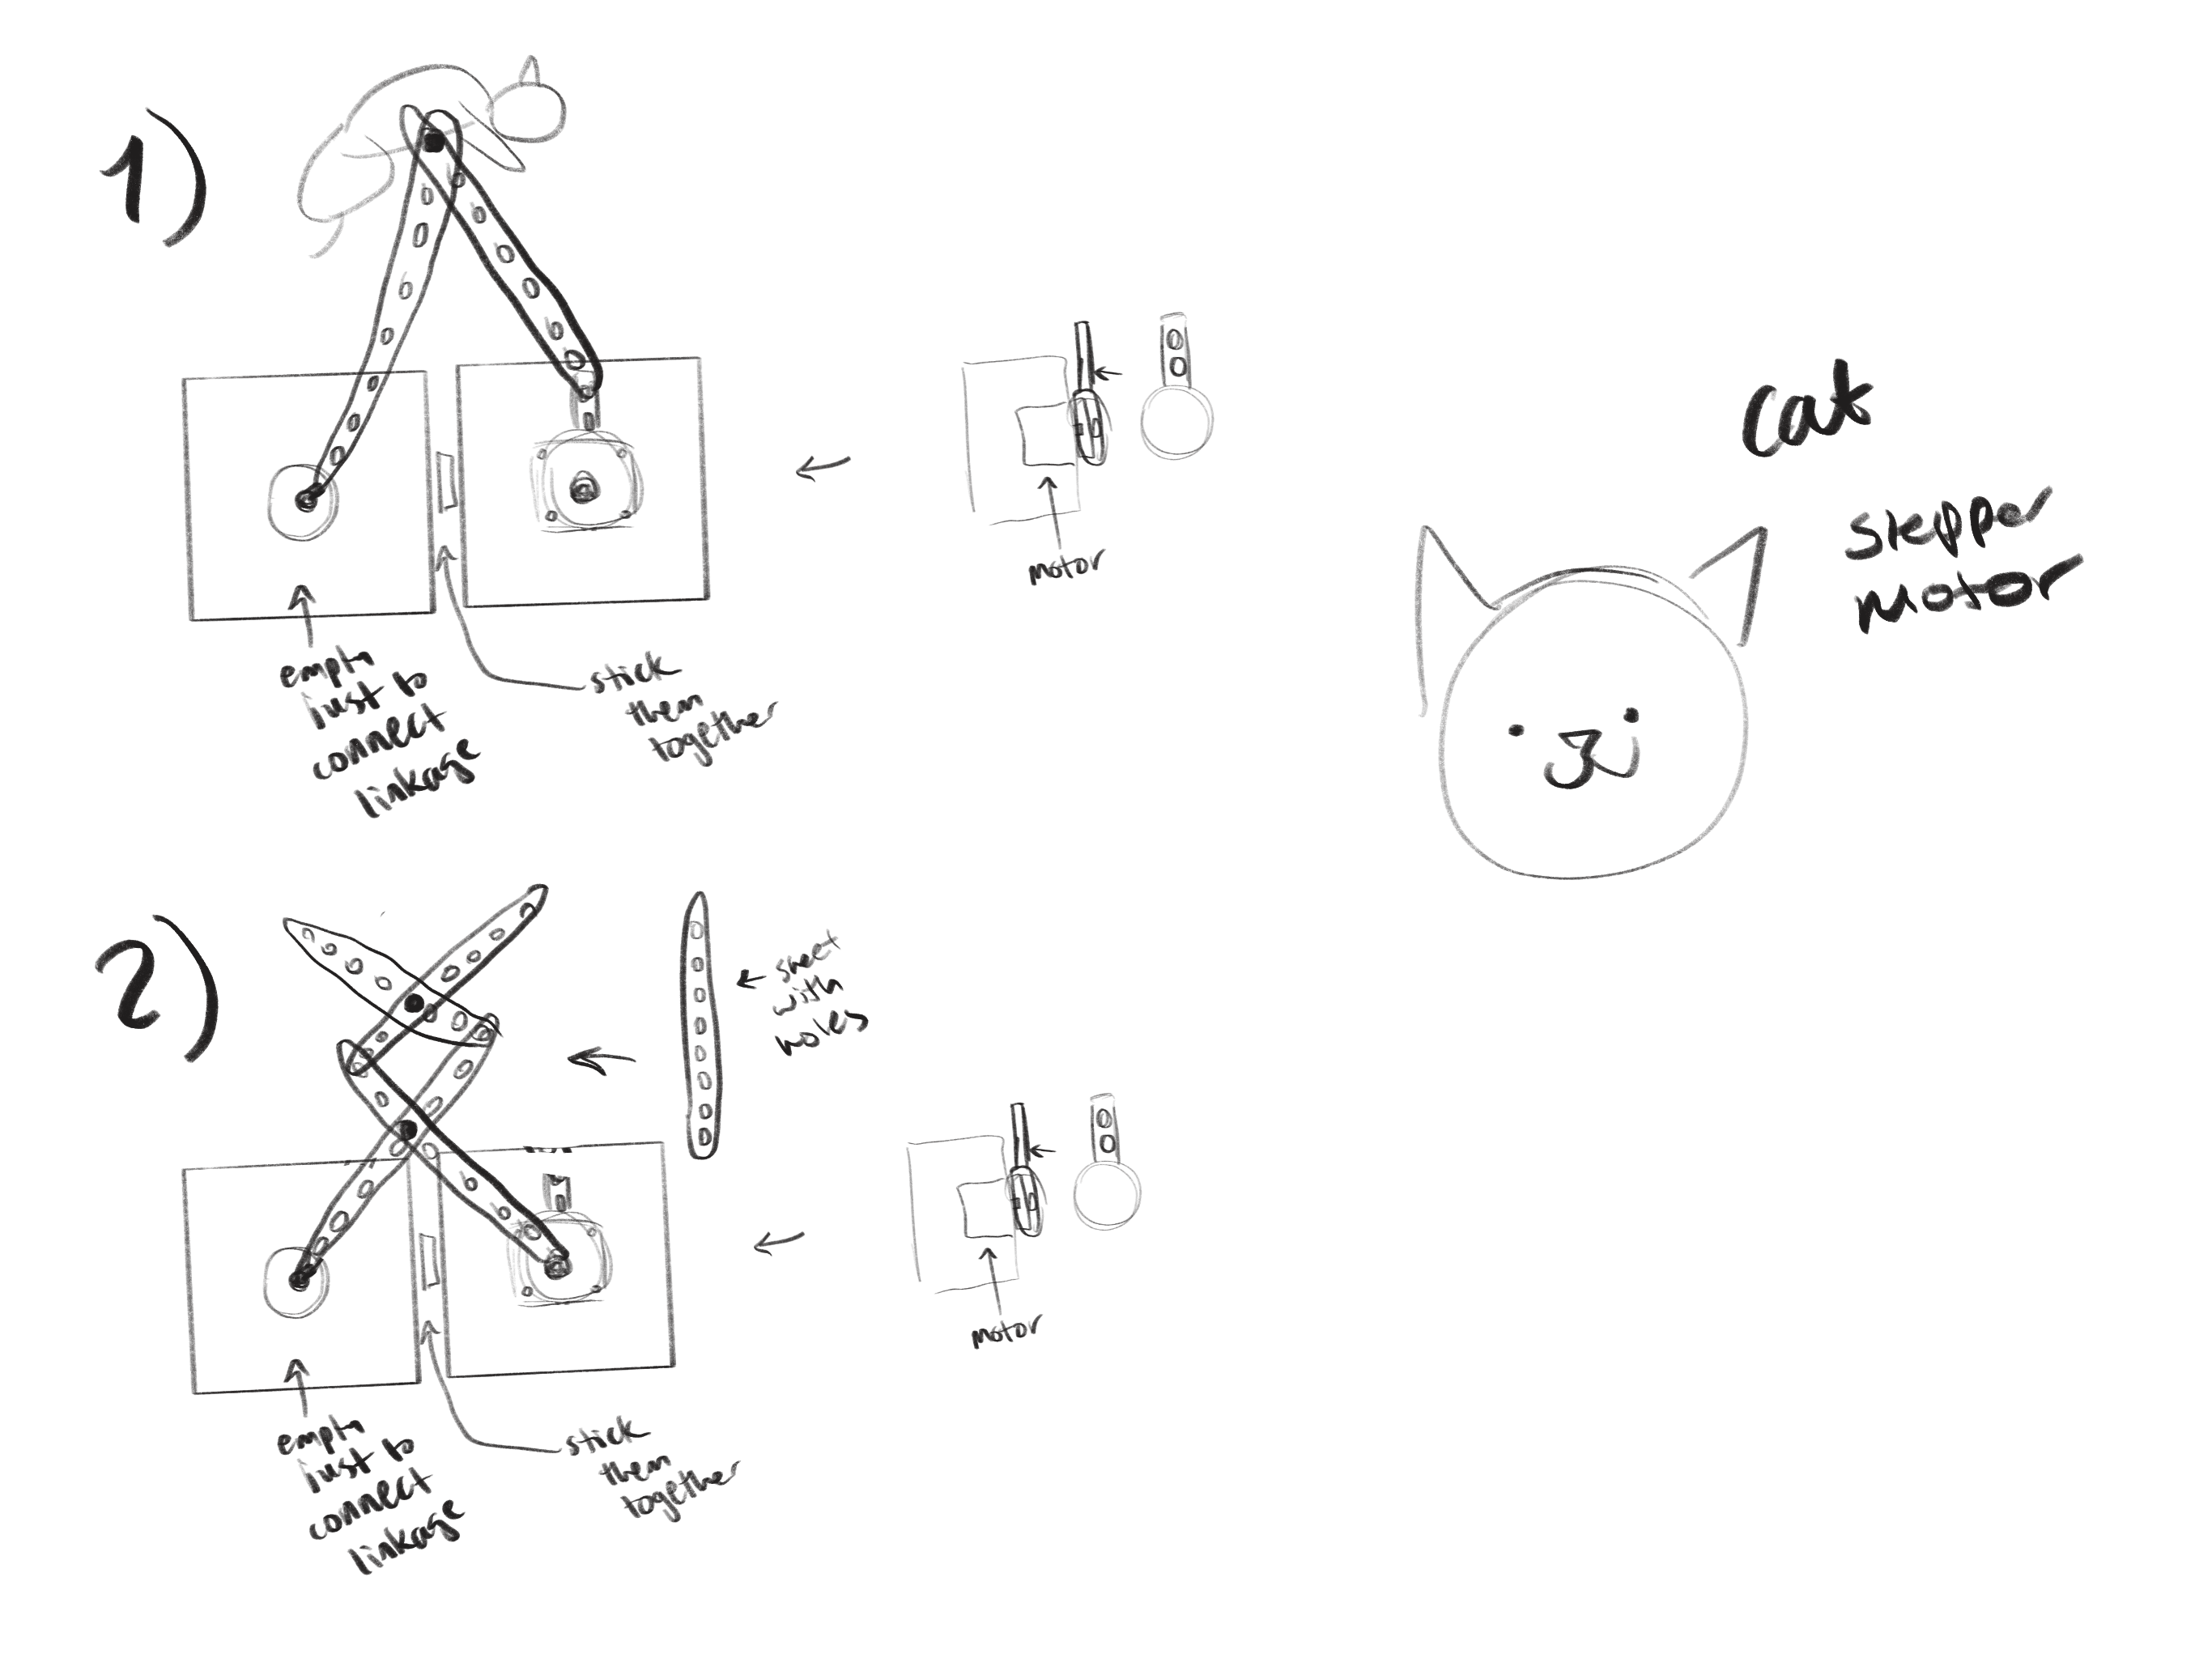 1)
empty
just to
connect
linkage
stick
them
together
motor
cat
stepper
motor
2)
sheet
with
holes
empty
just to
connect
linkage
stick
them
together
motor